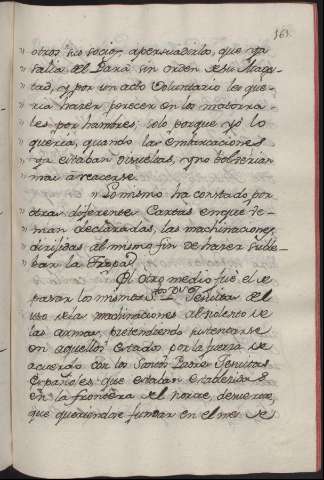 163.
" otros sus socios, apersuadirlo, que ya
" salia del Parà sin orden desu Mages-
" tad, y por un acto Voluntario les que-
" ria hazer perecer en los matorra-
" les por hambres; solo porque yo lo
" queria, quando las embarcaciones
" ya estaban disueltas, y no bolverian
" mas a reacerse.
" Lo mismo ha constado por
" otras diferentes Cartas en que se-
" rian declaradas, las machinaciones
" dirifidas al mismo fin de hazer suble-
" bar la Tropa.
El otro medio fuè el de
pasar los mismos Jesuitas del
uso de las machinaciones al violento de
las armas, pretendiendo sustentarse
en aquellos Estados por la fuerza de
acuerdo con los Santos Padres Jesuitas
Españoles que estaban establecidos
en la frontera del Norte, de suerte,
que queriendose fundar en el mes de